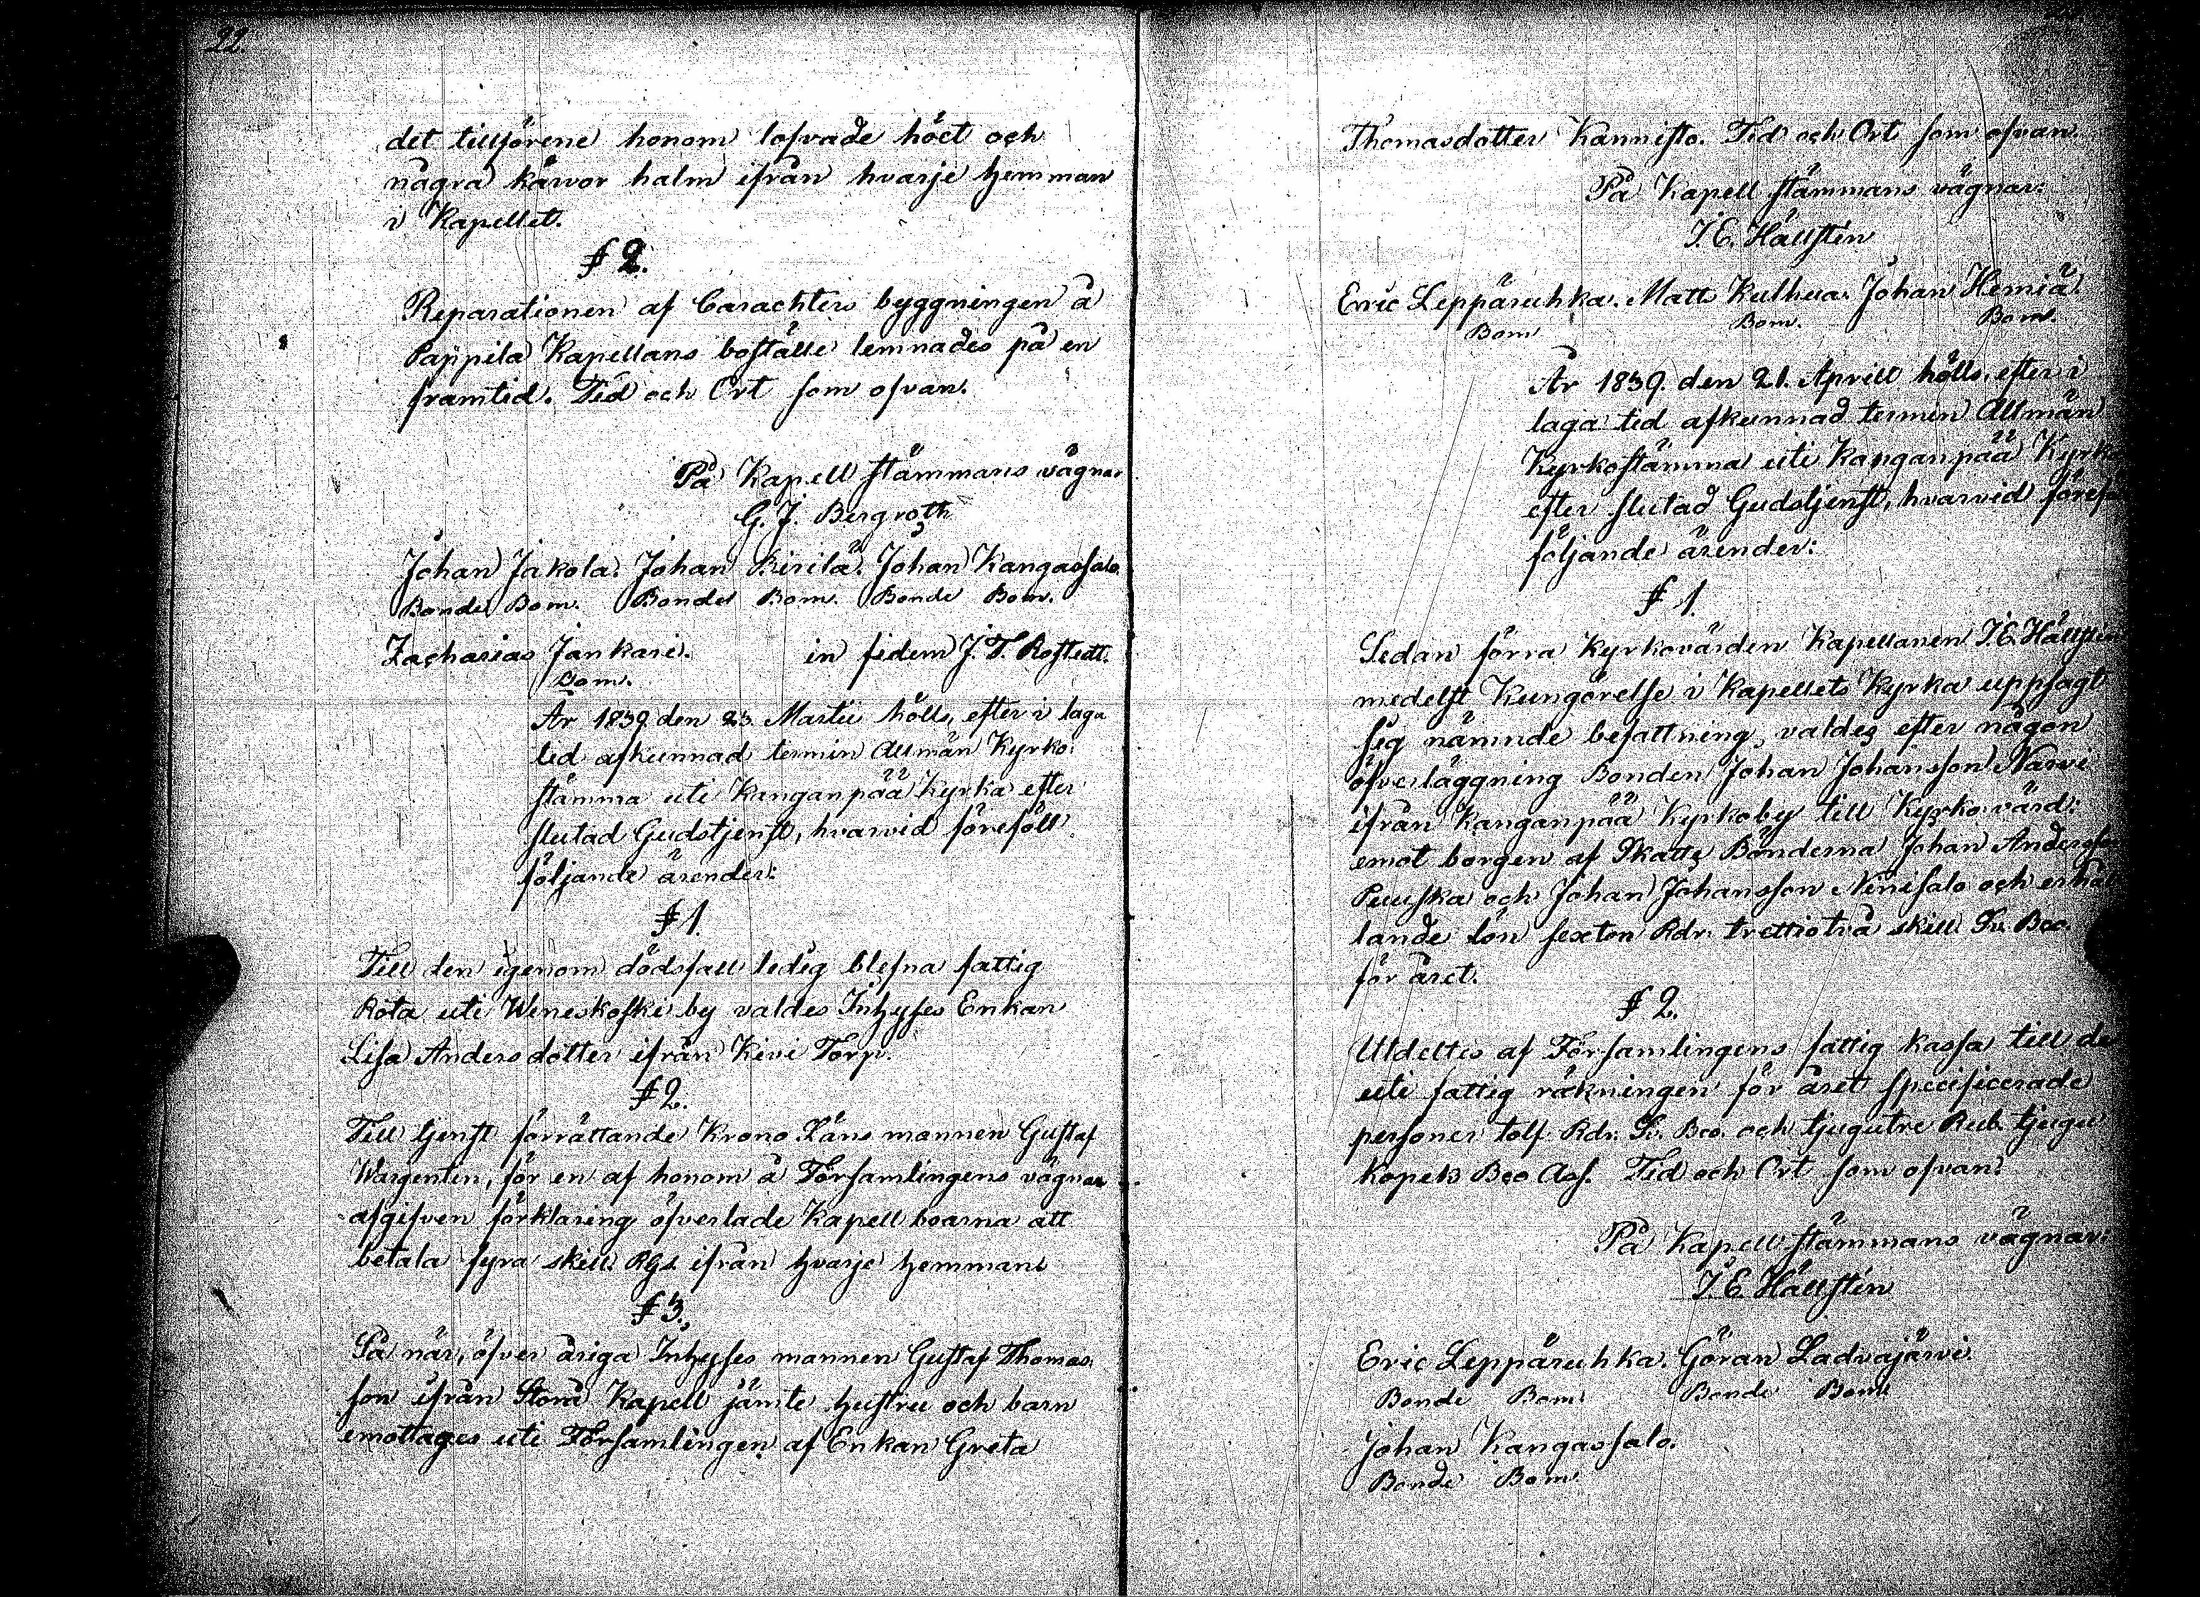 22.
det tillförene honom lofvade höet och
några kärvor halm ifrån hvarje hemman
i Kapellet.
§ 2.
Reparationen af Carachters byggningen å
Pappila Kapellans boställe lemnades på en
framtid. Tid och Ort som ofvan.
På Kapell stämmans vägnar
G. J. Bergroth
Johan Jakola. Johan Kirilä. Johan Kangassalo.
Bonde Bom. Bonde Bom. Bonde Bom.
Zacharias Jankari. in fidem J. T. Rostedt.
Bom.
År 1839 den 23. Martii hölls, efter i laga
tid afkunnad termin Allmän Kyrko
stämma uti Kanganpää Kyrka efter
slutad Gudstjenst, hvarvid föreföll
följande ärender:
§ 1.
Till den igenom dödsfall ledig blefna fattig
Rota uti Wineskoski by valdes Inhyses Enkan
Lisa Anders dotter ifrån Kivi Torp.
§ 2.
Till tjenst förrättande Krono Läns mannen Gustaf
Wargentin, för en af honom å Församlingens vägnar
afgifven förklaring öfverlade Kapell boarna att
betala fyra skill. Rgs ifrån hvarje hemman
§ 3.
På när, öfver åriga Inhyses mannen Gustaf Thomas
son ifrån Storå Kapell jämte hustru och barn
emottages uti Församlingen af Enkan Greta
Thomasdotter Kannisto. Tid och Ort som ofvan.
På Kapell stämmans vägnar:
I. E. Hällstén
Eric Leppäruhka. Matts Kulhua. Johan Hemiä.
Bom Bom. Bom.
År 1839. den 21. Aprill hölls, efter i
laga tid afkunnad termin Allmän
Kyrkostämma uti Kanganpää Kyrk
efter slutad Gudstjenst, hvarvid föref
följande ärender:
§ 1.
Sedan förra Kyrkovärden Kapellanen I. E. Hällsten
medelst Kungörelse i Kapellets Kyrka uppsagt
sig nämnde befattning, valdes efter någon
öfverläggning Bonden Johan Johansson Narvi
ifrån Kanganpää Kyrkoby till Kyrko värd:
emot borgen af Skatte Bönderna Johan Andersson
Peuska och Johan Johansson Niinisalo och erhål
lande lön sexton Rdr. trettiotvå skill. Sv. Bco.
för året.
§ 2.
Utdeltes af Församlingens fattig kassa till de
uti fattig räkningen för året specificerade
personer tolf Rdr. Sv. Bco. och tjugutre Rub. tjugu
Kopek Bco Ass. Tid och Ort som ofvan.
På Kapell stämmans vägnar:
I. E. Hällstén
Eric Leppäruhka. Göran Ladvajärvi.
Bonde Bom. Bonde Bom
Johan Kangassalo.
Bonde Bom